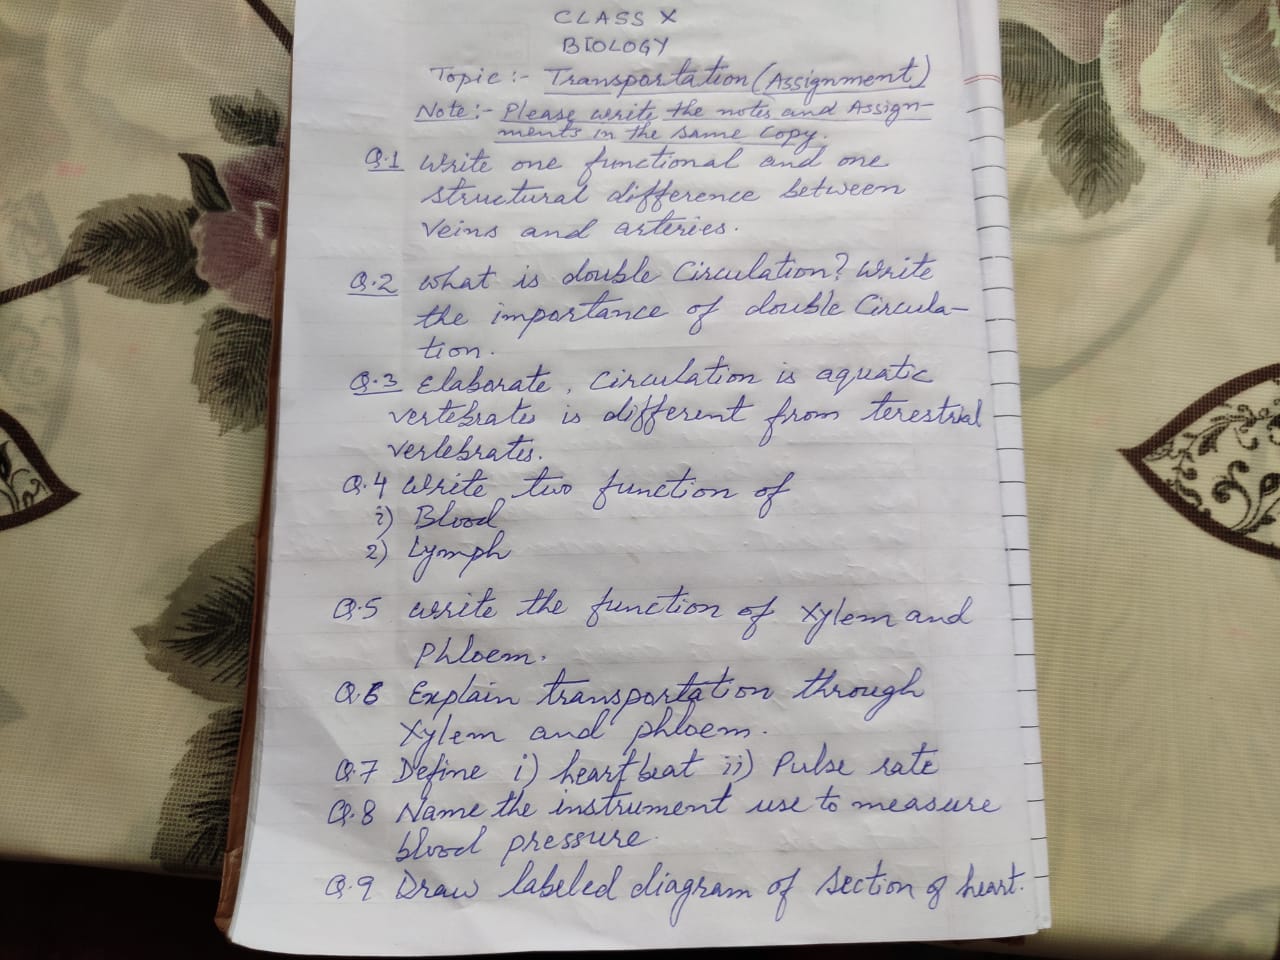 CLASS X
BIOLOGY
Topic :- Transportation (Assignment)
Note :- Please write the notes and Assign-
ments in the same copy.
Q.1 Write one functional and one
structural difference between
veins and arteries.
Q.2 what is double Circulation? Write
the importance of double Circula-
tion.
Q.3 Elaborate, Circulation is aquatic
vertebrates is different from terestrial
vertebrates.
Q.4 write two function of
i) Blood
2) Lymph
Q.5 write the function of Xylem and
Phloem.
Q.6 Explain transportation through
Xylem and phloem.
Q.7 Define i) heart beat ii) Pulse rate
Q.8 Name the instrument use to measure
blood pressure.
Q.9 Draw labeled diagram of section of heart.